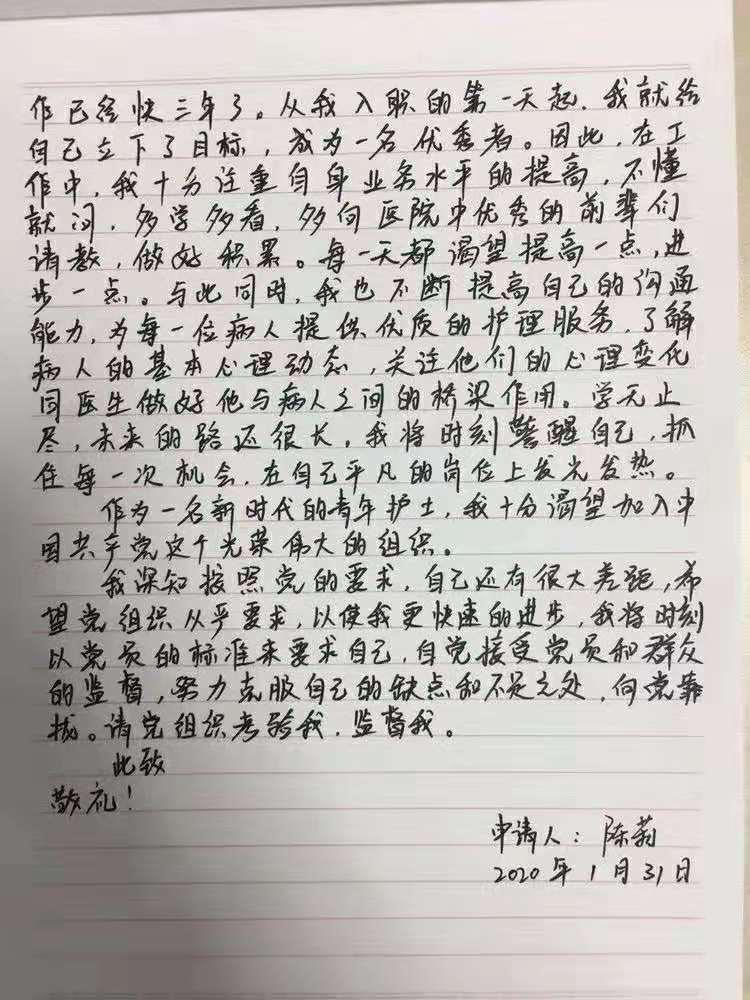 作已经快三年了。从我入职的第一天起，我就给
自己立下了目标，成为一名优秀者。因此，在工
作中，我十分注重自身业务水平的提高，不懂
就问，多学多看，多向医院中优秀的前辈们
请教，做好积累。每一天都渴望提高一点，进
步一点。与此同时，我也不断提高自己的沟通
能力，为每一位病人提供优质的护理服务，了解
病人的基本心理动态，关注他们的心理变化
同医生做好他与病人之间的桥梁作用。学无止
尽，未来的路还很长，我将时刻警醒自己，抓
住每一次机会，在自己平凡的岗位上发光发热。
作为一名新时代的青年护士，我十分渴望加入中
国共产党这个光荣伟大的组织。
我深知按照党的要求，自己还有很大差距，希
望党组织从严要求，以使我更快速的进步，我将时刻
以党员的标准来要求自己，自觉接受党员和群众
的监督，努力克服自己的缺点和不足之处，向党靠
拢。请党组织考验我，监督我。
此致
敬礼！
申请人：陈莉
2020年1月31日